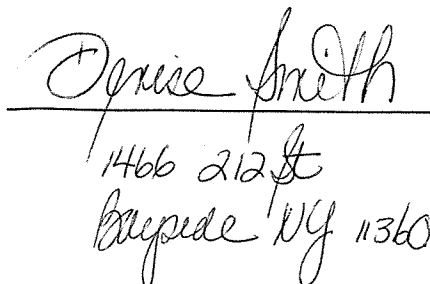 Denise Smith
1466 212 St
Bayside NY 11360